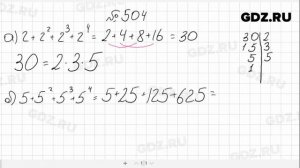 GDZ.RU
№ 504
а) 2+2²+2³+2⁴ = 2+4+8+16 = 30
30 = 2·3·5
30|2
15|3
5|5
1
б) 5+5²+5³+5⁴ = 5+25+125+625 =